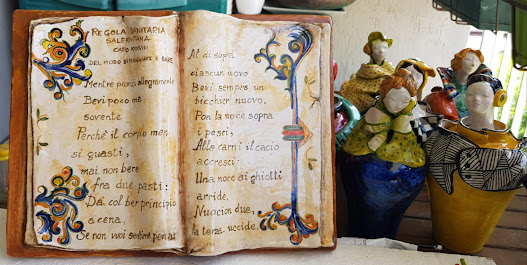 REGOLA SANITARIA
SALERNITANA
CAPO XXXVIII
DEL MODO DI MANGIARE E BERE
Mentre pranzi allegramente
Bevi poco ma
sovente
Perchè il corpo non
si guasti,
mai non bere
fra due pasti:
Dà col ber principio
a cena,
Se non vuoi
Al di sopra
ciascun novo
Bevi sempre un
bicchier nuovo,
Pon la noce sopra
i pesci,
Alle carni il cacio
accresci:
Una noce di ghiotti
arride,
Nuocion due,
la terza uccide.